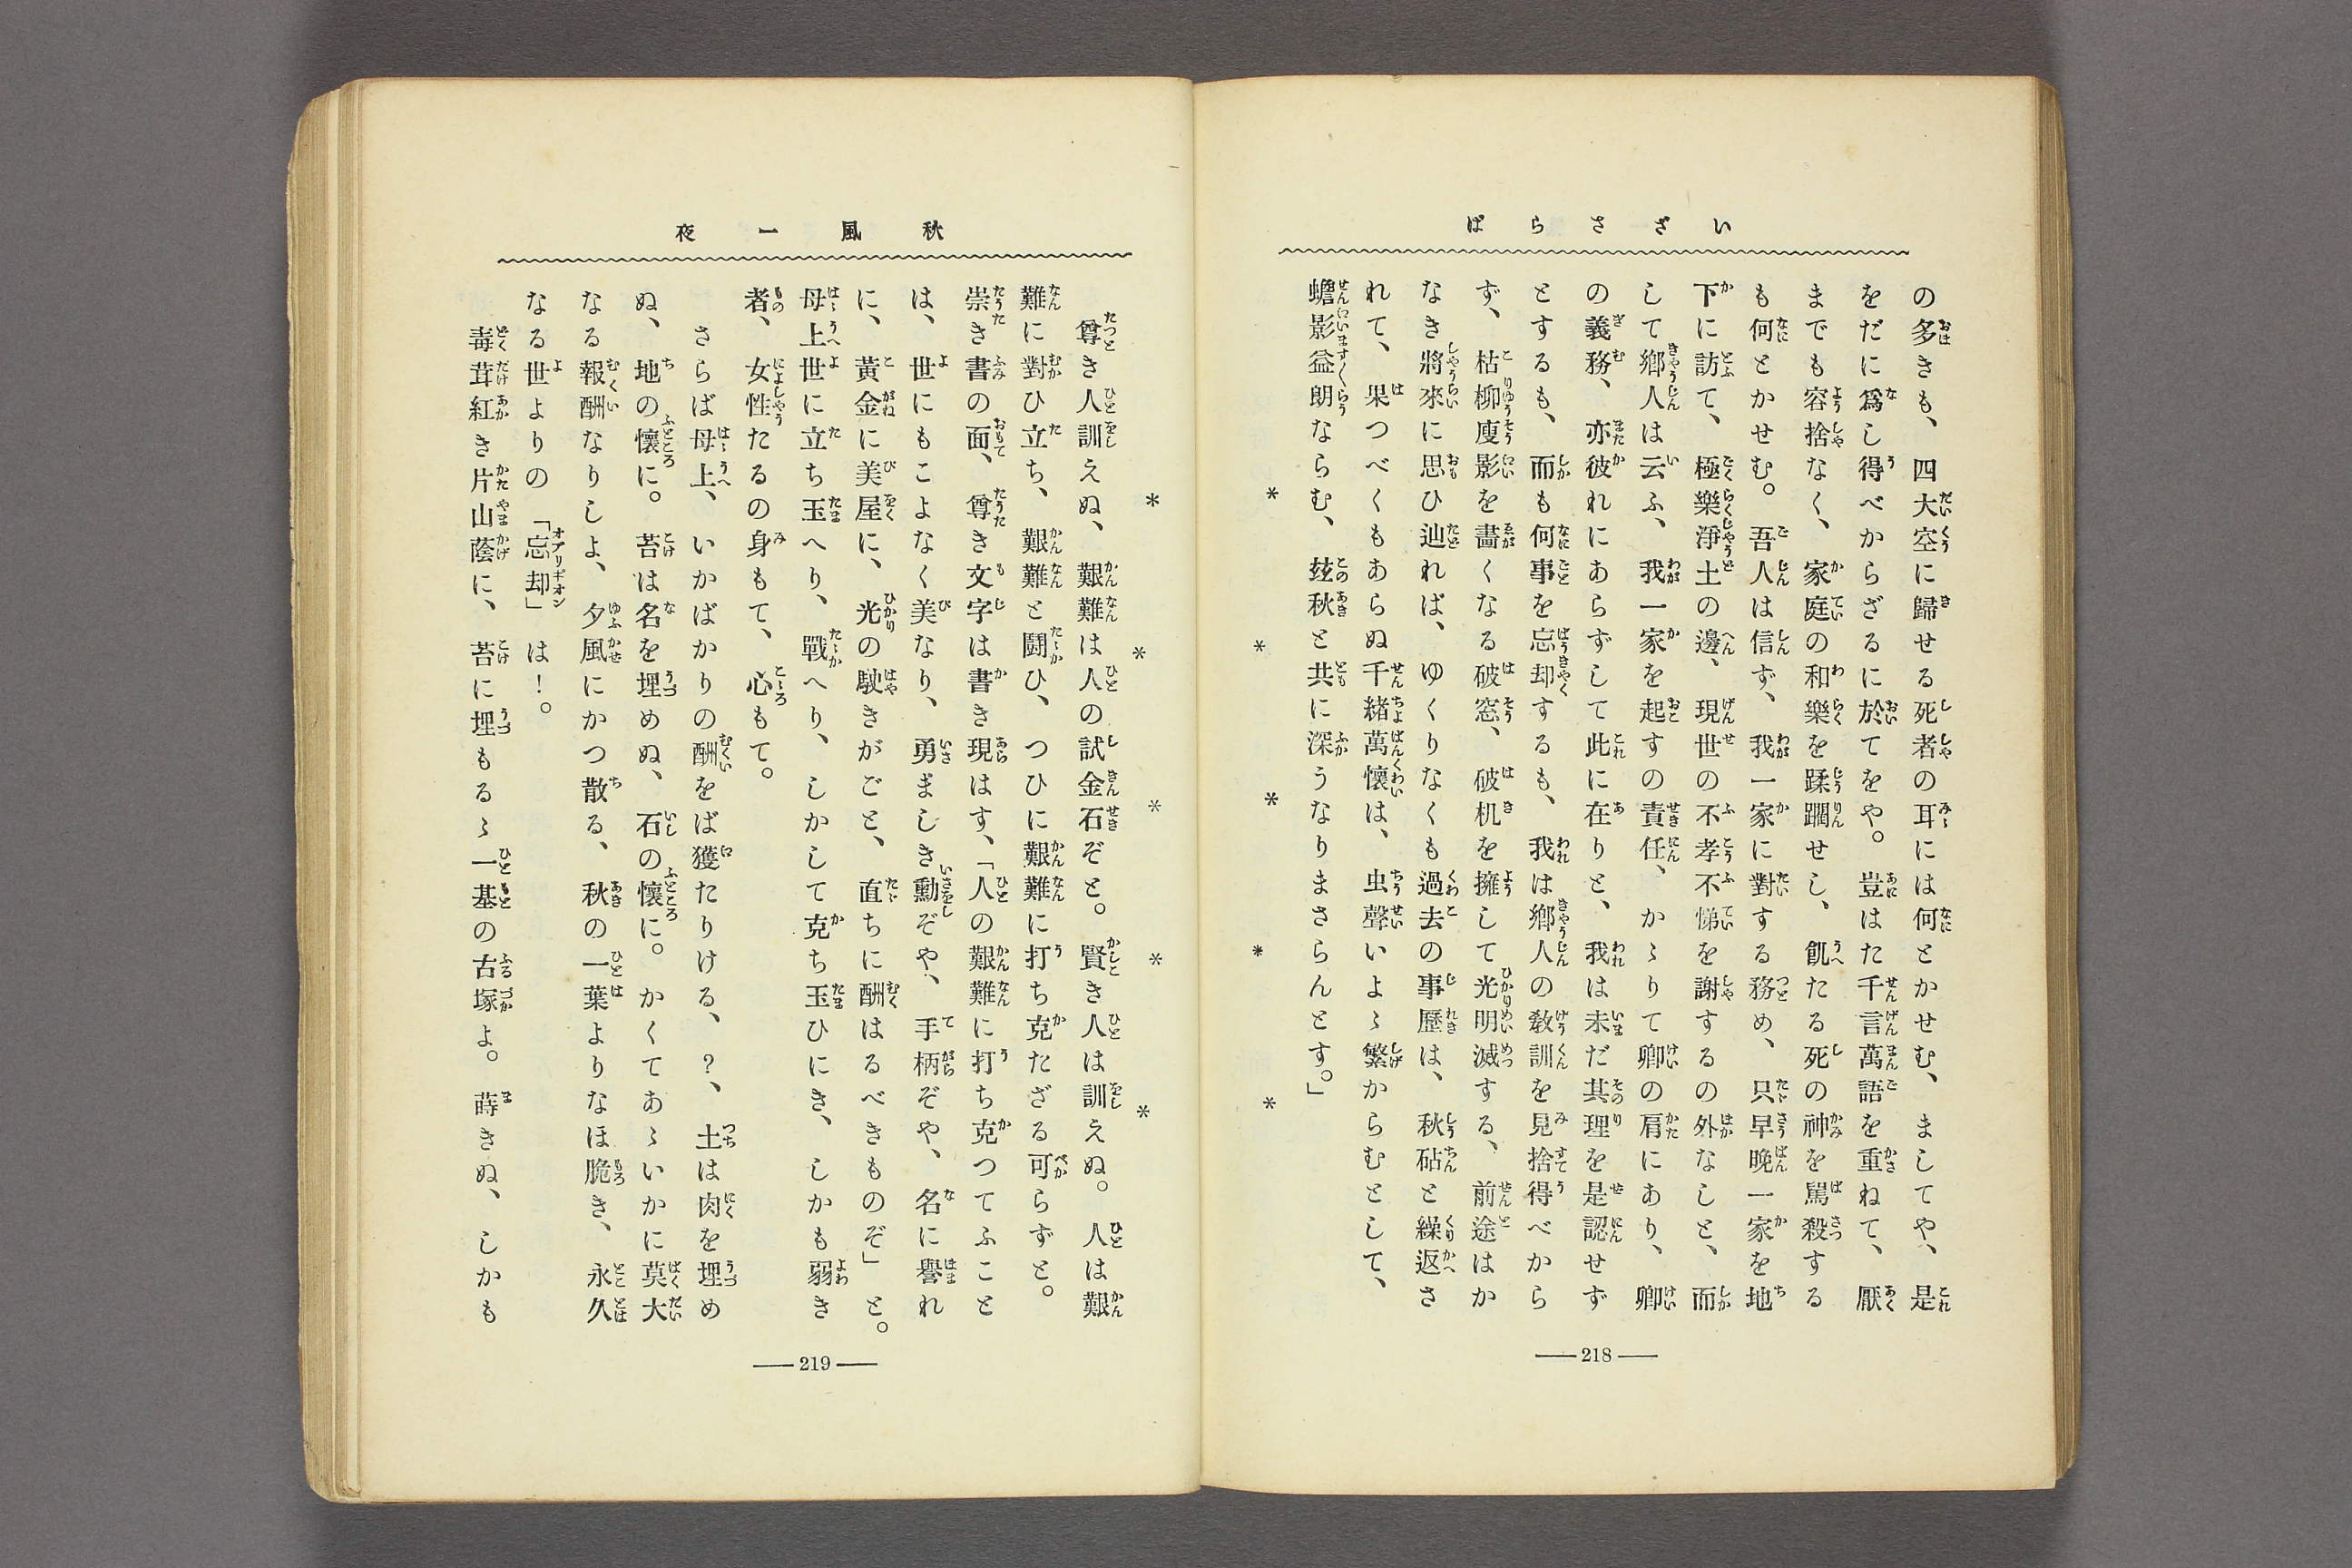 いざさらば
の多きも、四大空に歸せる死者の耳には何とかせむ、ましてや、是
をだに爲し得べからざるに於てをや。豈はた千言萬語を重ねて、厭
までも容捨なく、家庭の和樂を蹂躙せし、飢たる死の神を罵殺する
も何とかせむ。吾人は信ず、我一家に對する務め、只早晩一家を地
下に訪て、極樂淨土の邊、現世の不孝不悌を謝するの外なしと、而
して鄕人は云ふ、我一家を起すの責任、かゝりて卿の肩にあり、卿
の義務、亦彼れにあらずして此に在りと、我は未だ其理を是認せず
とするも、而も何事を忘却するも、我は鄕人の敎訓を見捨得べから
ず、枯柳廋影を畵くなる破窓、破机を擁して光明滅する、前途はか
なき將來に思ひ辿れば、ゆくりなくも過去の事歷は、秋砧と繰返さ
れて、果つべくもあらぬ千緖萬懷は、虫聲いよゝ繁からむとして、
蟾影益朗ならむ、玆秋と共に深うなりまさらんとす。」
＊　＊　＊　＊　＊
218
秋風一夜
＊　＊　＊　＊　＊
尊き人訓えぬ、艱難は人の試金石ぞと。賢き人は訓えぬ。人は艱
難に對ひ立ち、艱難と闘ひ、つひに艱難に打ち克たざる可らずと。
崇き書の面、尊き文字は書き現はす、「人の艱難に打ち克つてふこと
は、世にもこよなく美なり、勇ましき勳ぞや、手柄ぞや、名に譽れ
に、黃金に美屋に、光の駛きがごと、直ちに酬はるべきものぞ」と。
母上世に立ち玉へり、戰へり、しかして克ち玉ひにき、しかも弱き
者、女性たるの身もて、心もて。
さらば母上、いかばかりの酬をば獲たりける、？、土は肉を埋め
ぬ、地の懷に。苔は名を埋めぬ、石の懷に。かくてあゝいかに莫大
なる報酬なりしよ、夕風にかつ散る、秋の一葉よりなほ脆き、永久
なる世よりの「忘却」は！。
毒茸紅き片山蔭に、苔に埋もるゝ一基の古塚よ。蒔きぬ、しかも
219